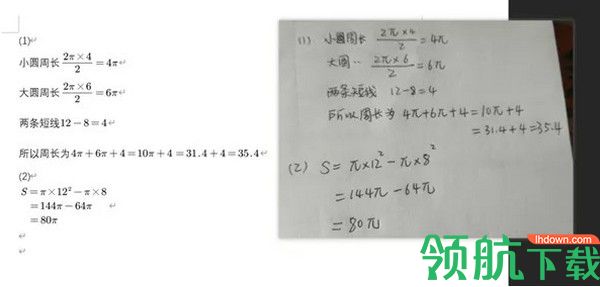 (1)
小圆周长 2π×4/2 = 4π
大圆周长 2π×6/2 = 6π
两条短线12−8=4
所以周长为4π+6π+4=10π+4=31.4+4=35.4
(2)
S=π×12²−π×8
=144π−64π
=80π
(1) 小圆周长 2π×4/2 = 4π
大圆·· 2π×6/2 = 6π
两条短线 12-8=4
所以周长为 4π+6π+4=10π+4
=31.4+4=35.4
(2) S= π×12²-π×8²
=144π-64π
=80π
lhdown.com
领航下载